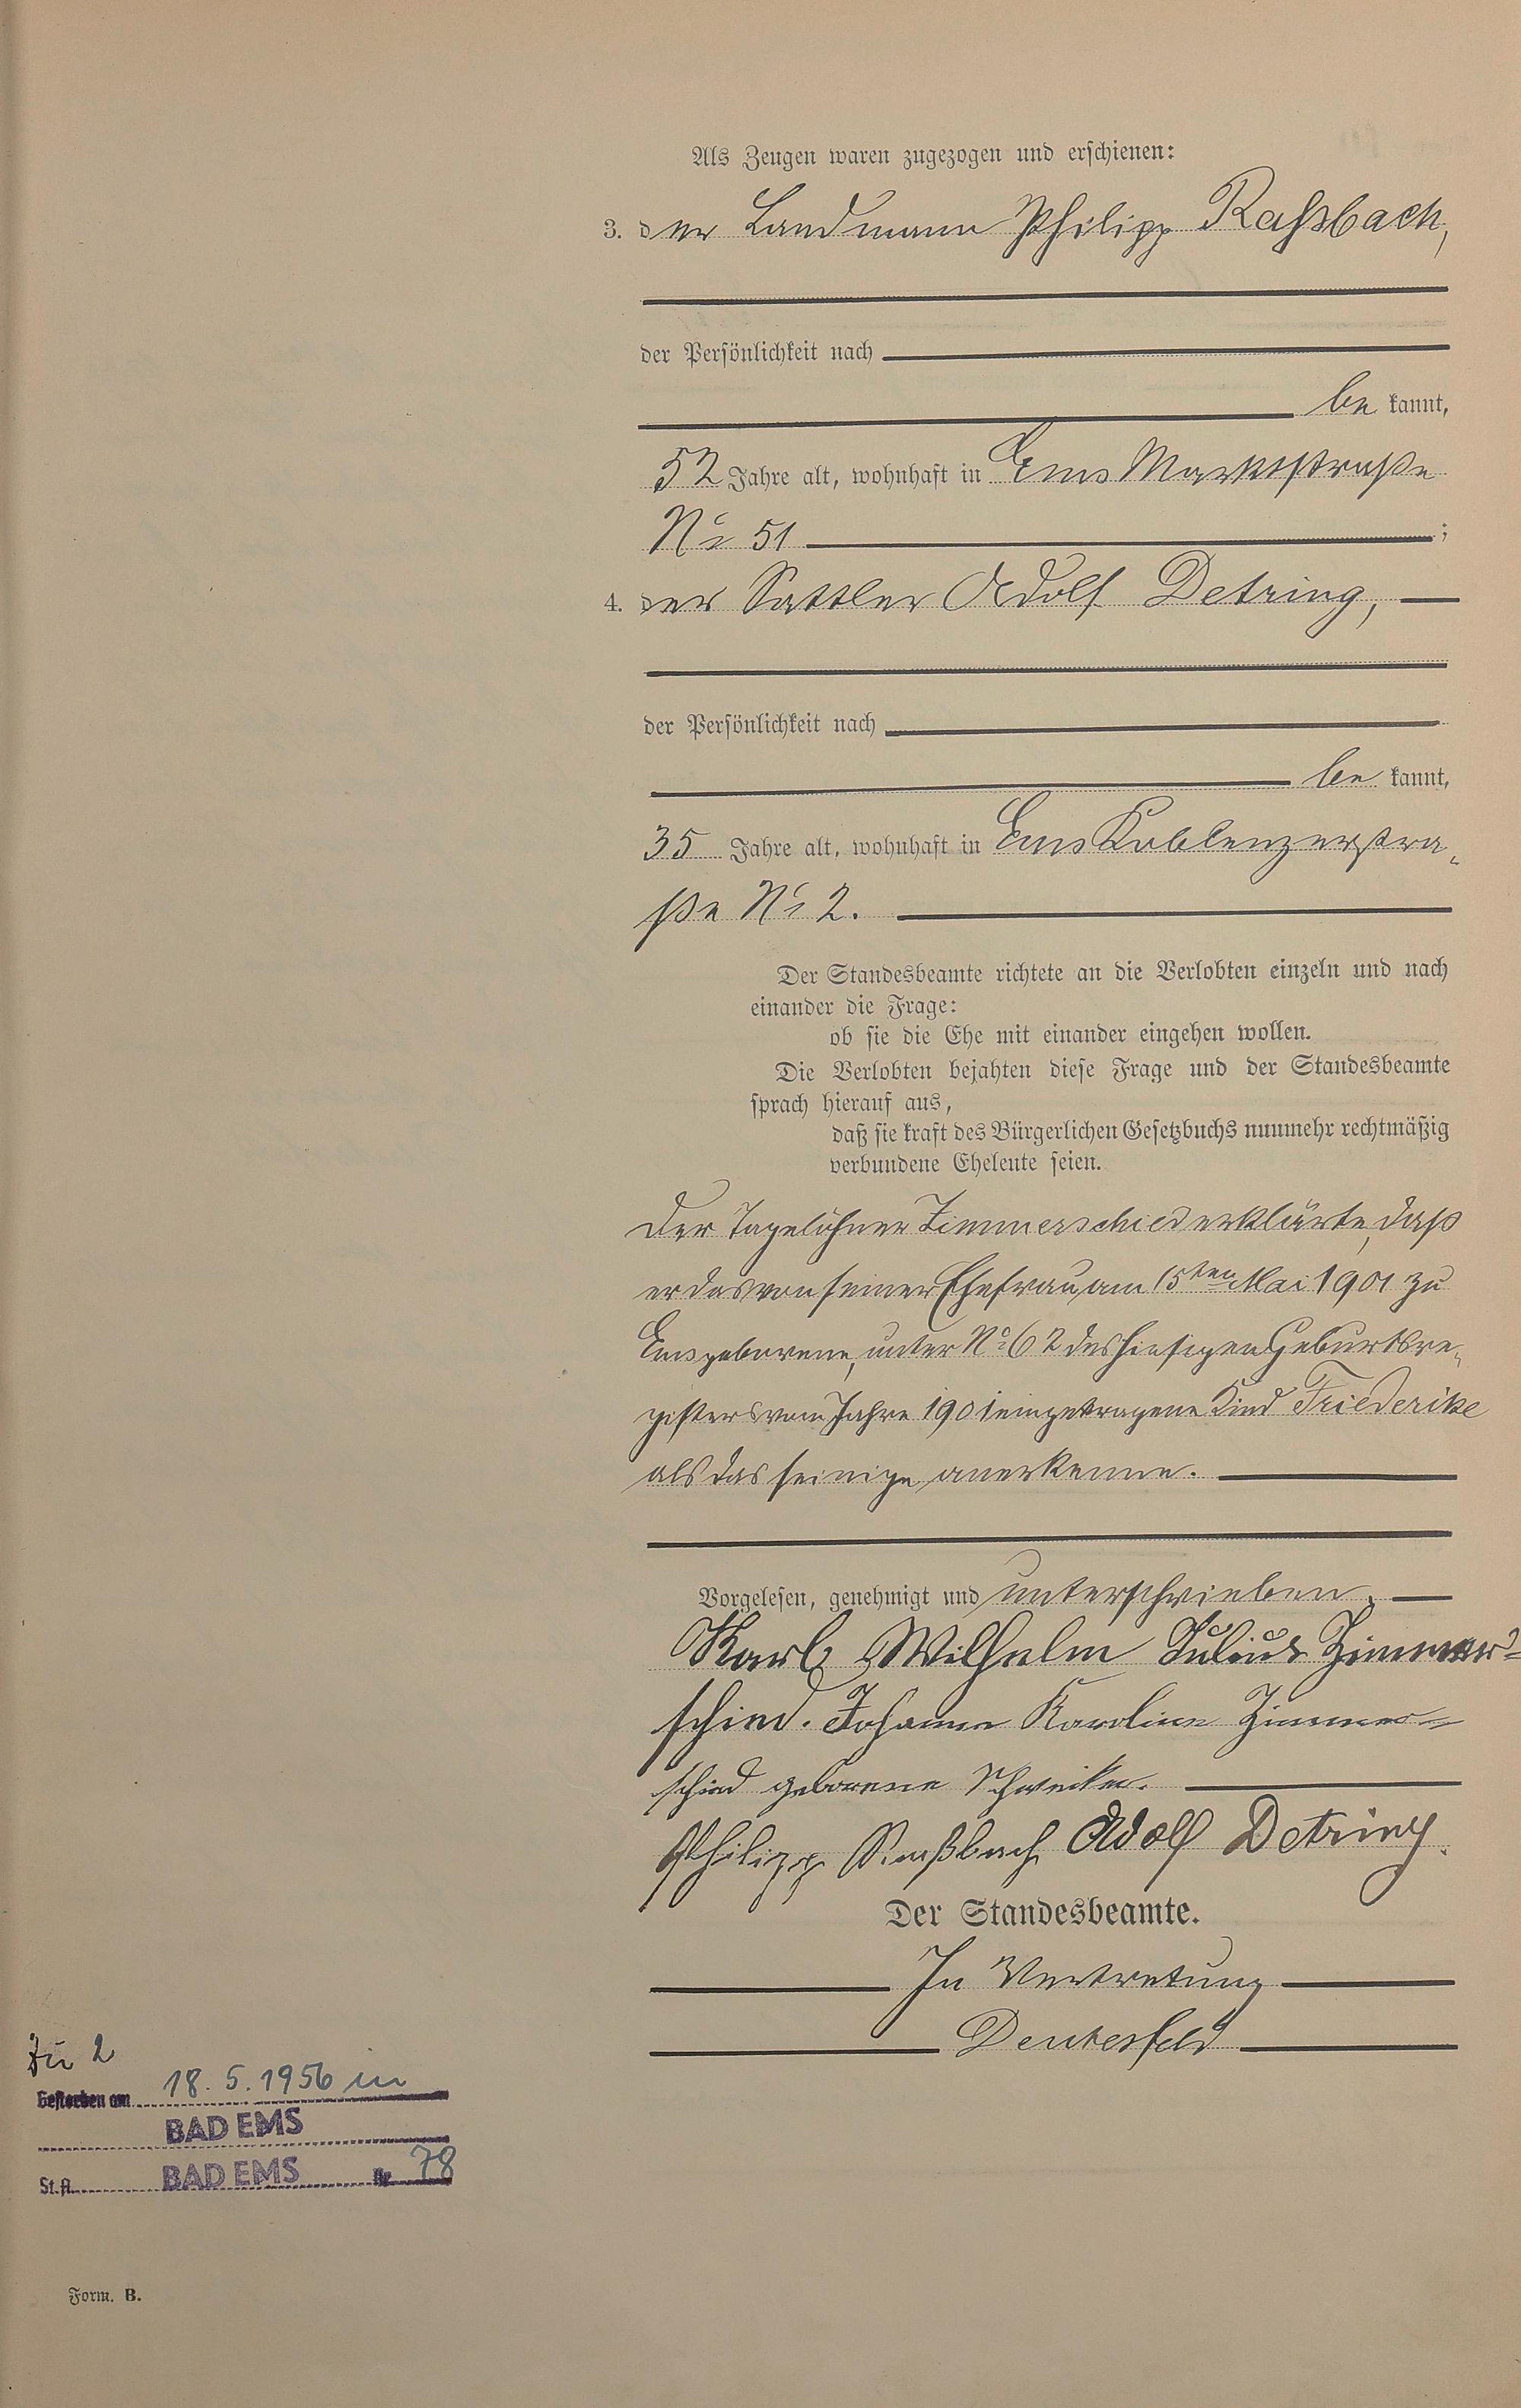 Als Zeugen waren zugezogen und erschienen:
3. der Landmann Philipp Raßbach,
der Persönlichkeit nach
be kannt,
52 Jahre alt, wohnhaft in Ems Marktstraße
No 51 ;
4. der Sattler Adolf Detring,
der Persönlichkeit nach
be kannt,
35 Jahre alt, wohnhaft in Ems Koblenzerstra-
ße No 2.
Der Standesbeamte richtete an die Verlobten einzeln und nach
einander die Frage:
ob sie die Ehe mit einander eingehen wollen.
Die Verlobten bejahten diese Frage und der Standesbeamte
sprach hierauf aus,
daß sie kraft des Bürgerlichen Gesetzbuchs nunmehr rechtmäßig
verbundene Eheleute seien.
Der Tagelöhner Zimmerschied erklärte, daß
er das von seiner Ehefrau am 15ten Mai 1901 zu
Ems geborene, unter No 62 des hiesigen Geburtsre-
gisters vom Jahre 1901 eingetragene Kind Friederike
als das seinige anerkenne.
Vorgelesen, genehmigt und unterschrieben.
Karl Wilhelm Julius Zimmer-
schied. Johanna Karoline Zimmer-
schied geborene
Philipp Raßbach Adolf Detring.
Der Standesbeamte.
In Vertretung
Deutesfeld
Zu 2
Gestorben am 18.5.1956 in
BAD EMS
St.A. BAD EMS Nr 78
Form. B.